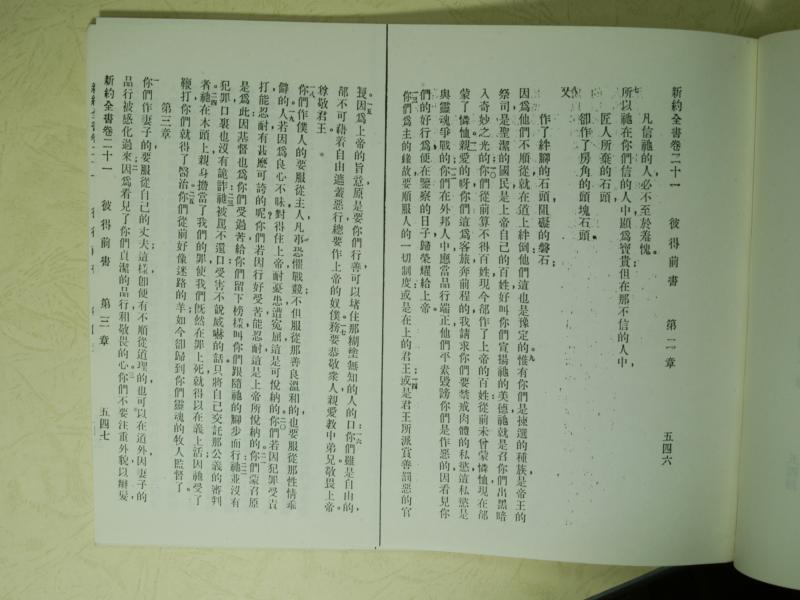 新約全書卷二十一 彼得前書 第二章 五四六
凡信祂的人必不至於羞愧。
七
所以祂在你們信的人中顯爲寶貴但在那不信的人中
匠人所棄的石頭
卻作了房角的頭塊石頭
八
又
作了絆腳的石頭阻礙的磐石
因爲他們不順從就在道上絆倒他們這也是豫定的惟有你們是揀選的種族是帝王的
九
祭司是聖潔的國民是上帝自己的百姓好叫你們宣揚祂的美德祂就是召你們出黑暗
一〇
入奇妙之光的你們從前算不得百姓現今都作了上帝的百姓從前未曾蒙憐恤現在都
一一
蒙了憐恤親愛的呀你們這爲客旅奔前程的我請求你們要禁戒肉體的私慾這私慾是
一二
與靈魂爭戰的你們在外邦人中應當品行端正他們平素毀謗你們是作惡的因看見你
們的好行爲便在鑒察的日子歸榮耀給上帝
一三 一四
你們爲主的緣故要順服人的一切制度或是在上的君王或是君王所派賞善罰惡的官
一五 一六
因爲上帝的旨意原是要你們行善可以堵住那糊塗無知的人的口你們雖是自由的
一七
都不可藉着自由遮蓋惡行總要作上帝的奴僕務要恭敬衆人親愛教中弟兄敬畏上帝
尊敬君王
一八
你們作僕人的要服從主人凡事恐懼戰兢不但服從那善良溫和的也要服從那性情乖
一九 二〇
僻的人若因爲良心不昧對得住上帝耐憂患遭寃屈這是可悅納的你們若因犯罪受責
二一
打能忍耐有甚麽可誇的呢你們若因行好受苦能忍耐這是上帝所悅納的你們蒙召原
二二
是爲此因基督也爲你們受過苦給你們留下榜樣叫你們跟隨祂的腳步而行祂並沒有
二三
犯罪口裏也沒有詭詐祂被罵不還口受害不說威嚇的話只將自己交託那公義的審判
二四
者祂在木頭上親身擔當了我們的罪使我們既然在罪上死就得以在義上活因祂受了
二五
鞭打你們就得了醫治你們從前好像迷路的羊如今卻歸到你們靈魂的牧人監督了
第三章
一
你們作妻子的要服從自己的丈夫這樣即便有不順從道理的也可以在道外因妻子的
二 三
品行被感化過來因爲看見了你們貞潔的品行和敬畏的心你們不要注重外貌以辮髮
新約全書卷二十一 彼得前書 第三章 五四七